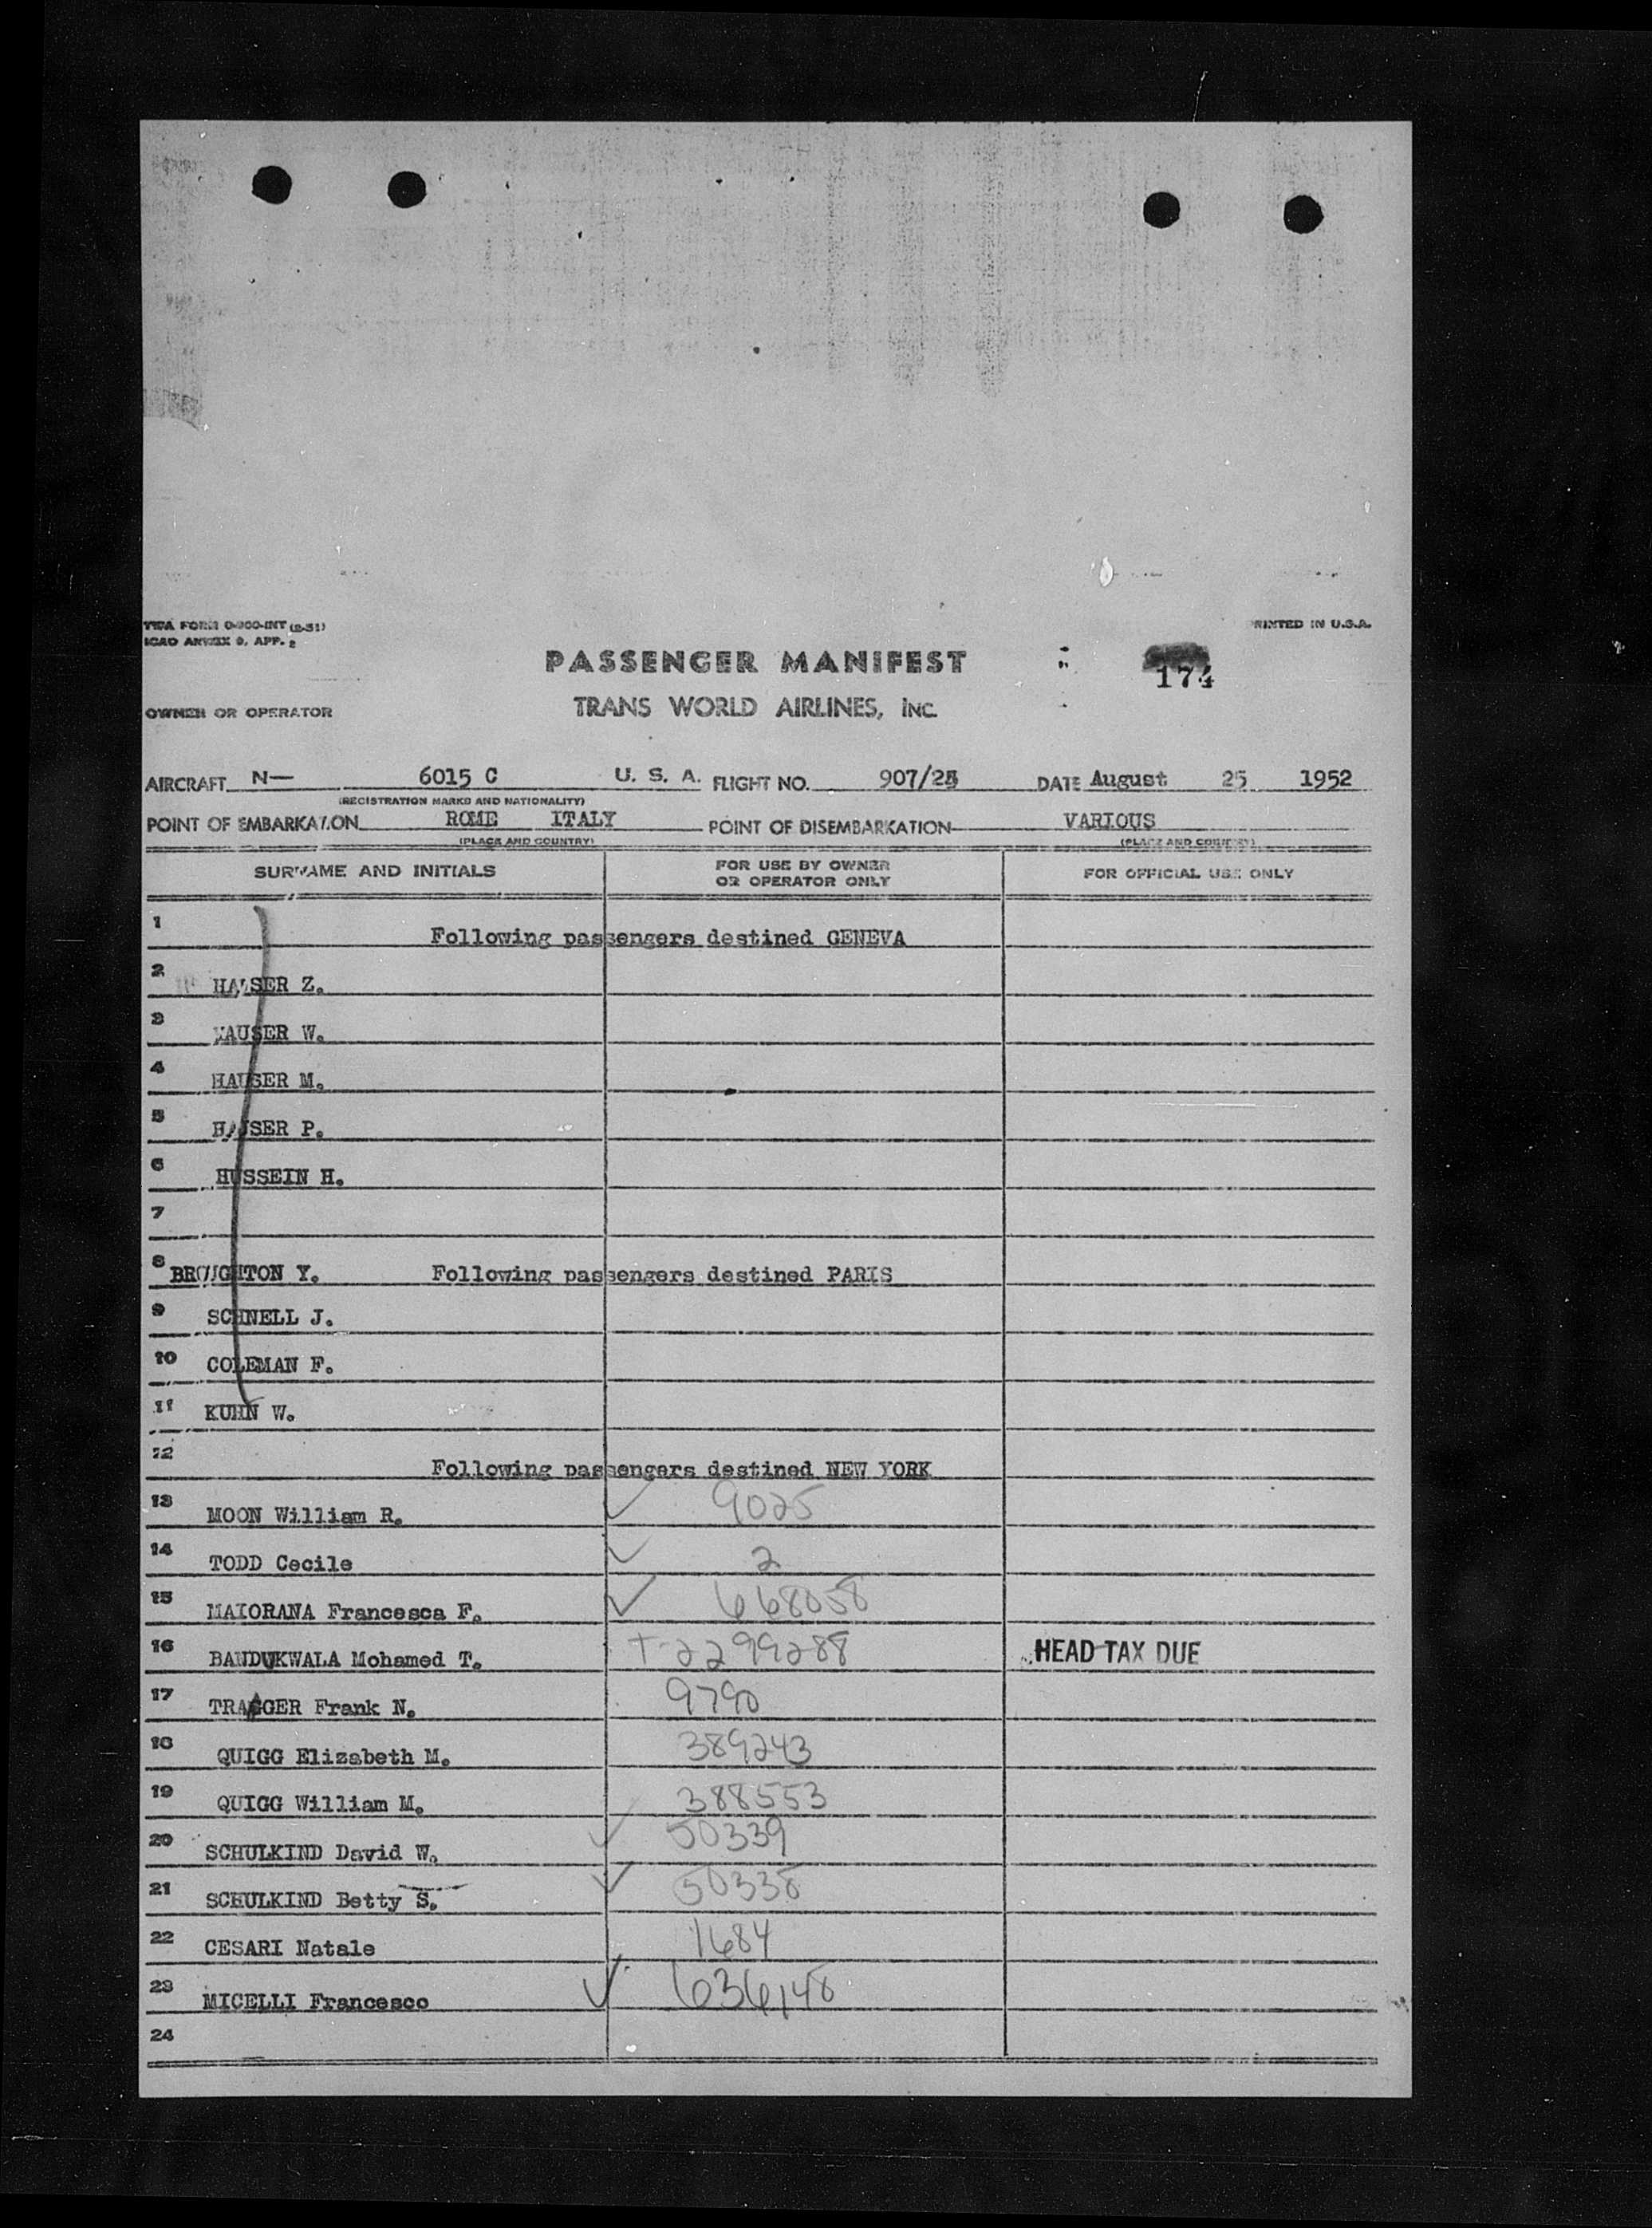 TWA FORM 0-900-INT (2-51)
ICAO ANNEX 9, APP. 2
PRINTED IN U.S.A.
PASSENGER MANIFEST
174
OWNER OR OPERATOR TRANS WORLD AIRLINES, INC.
AIRCRAFT N— 6015 C U. S. A. FLIGHT NO. 907/25 DATE August 25 1952
(REGISTRATION MARKS AND NATIONALITY)
POINT OF EMBARKATION ROME ITALY POINT OF DISEMBARKATION VARIOUS
(PLACE AND COUNTRY) (PLACE AND COUNTRY)
SURNAME AND INITIALS FOR USE BY OWNER OR OPERATOR ONLY FOR OFFICIAL USE ONLY
1 Following passengers destined GENEVA
2 HAUSER Z.
3 HAUSER W.
4 HAUSER M.
5 HAUSER P.
6 HUSSEIN H.
7
8 BROUGHTON Y. Following passengers destined PARIS
9 SCHNELL J.
10 COLEMAN F.
11 KUHN W.
12 Following passengers destined NEW YORK
13 MOON William R. ✓ 9025
14 TODD Cecile ✓ 2
15 MAIORANA Francesca F. ✓ 668058
16 BANDUKWALA Mohamed T. T-2299288 HEAD TAX DUE
17 TRAGGER Frank N. 9790
18 QUIGG Elizabeth M. 389243
19 QUIGG William M. 388553
20 SCHULKIND David W. ✓ 50339
21 SCHULKIND Betty S. ✓ 50338
22 CESARI Natale 1684
23 MICELLI Francesco ✓ 636148
24